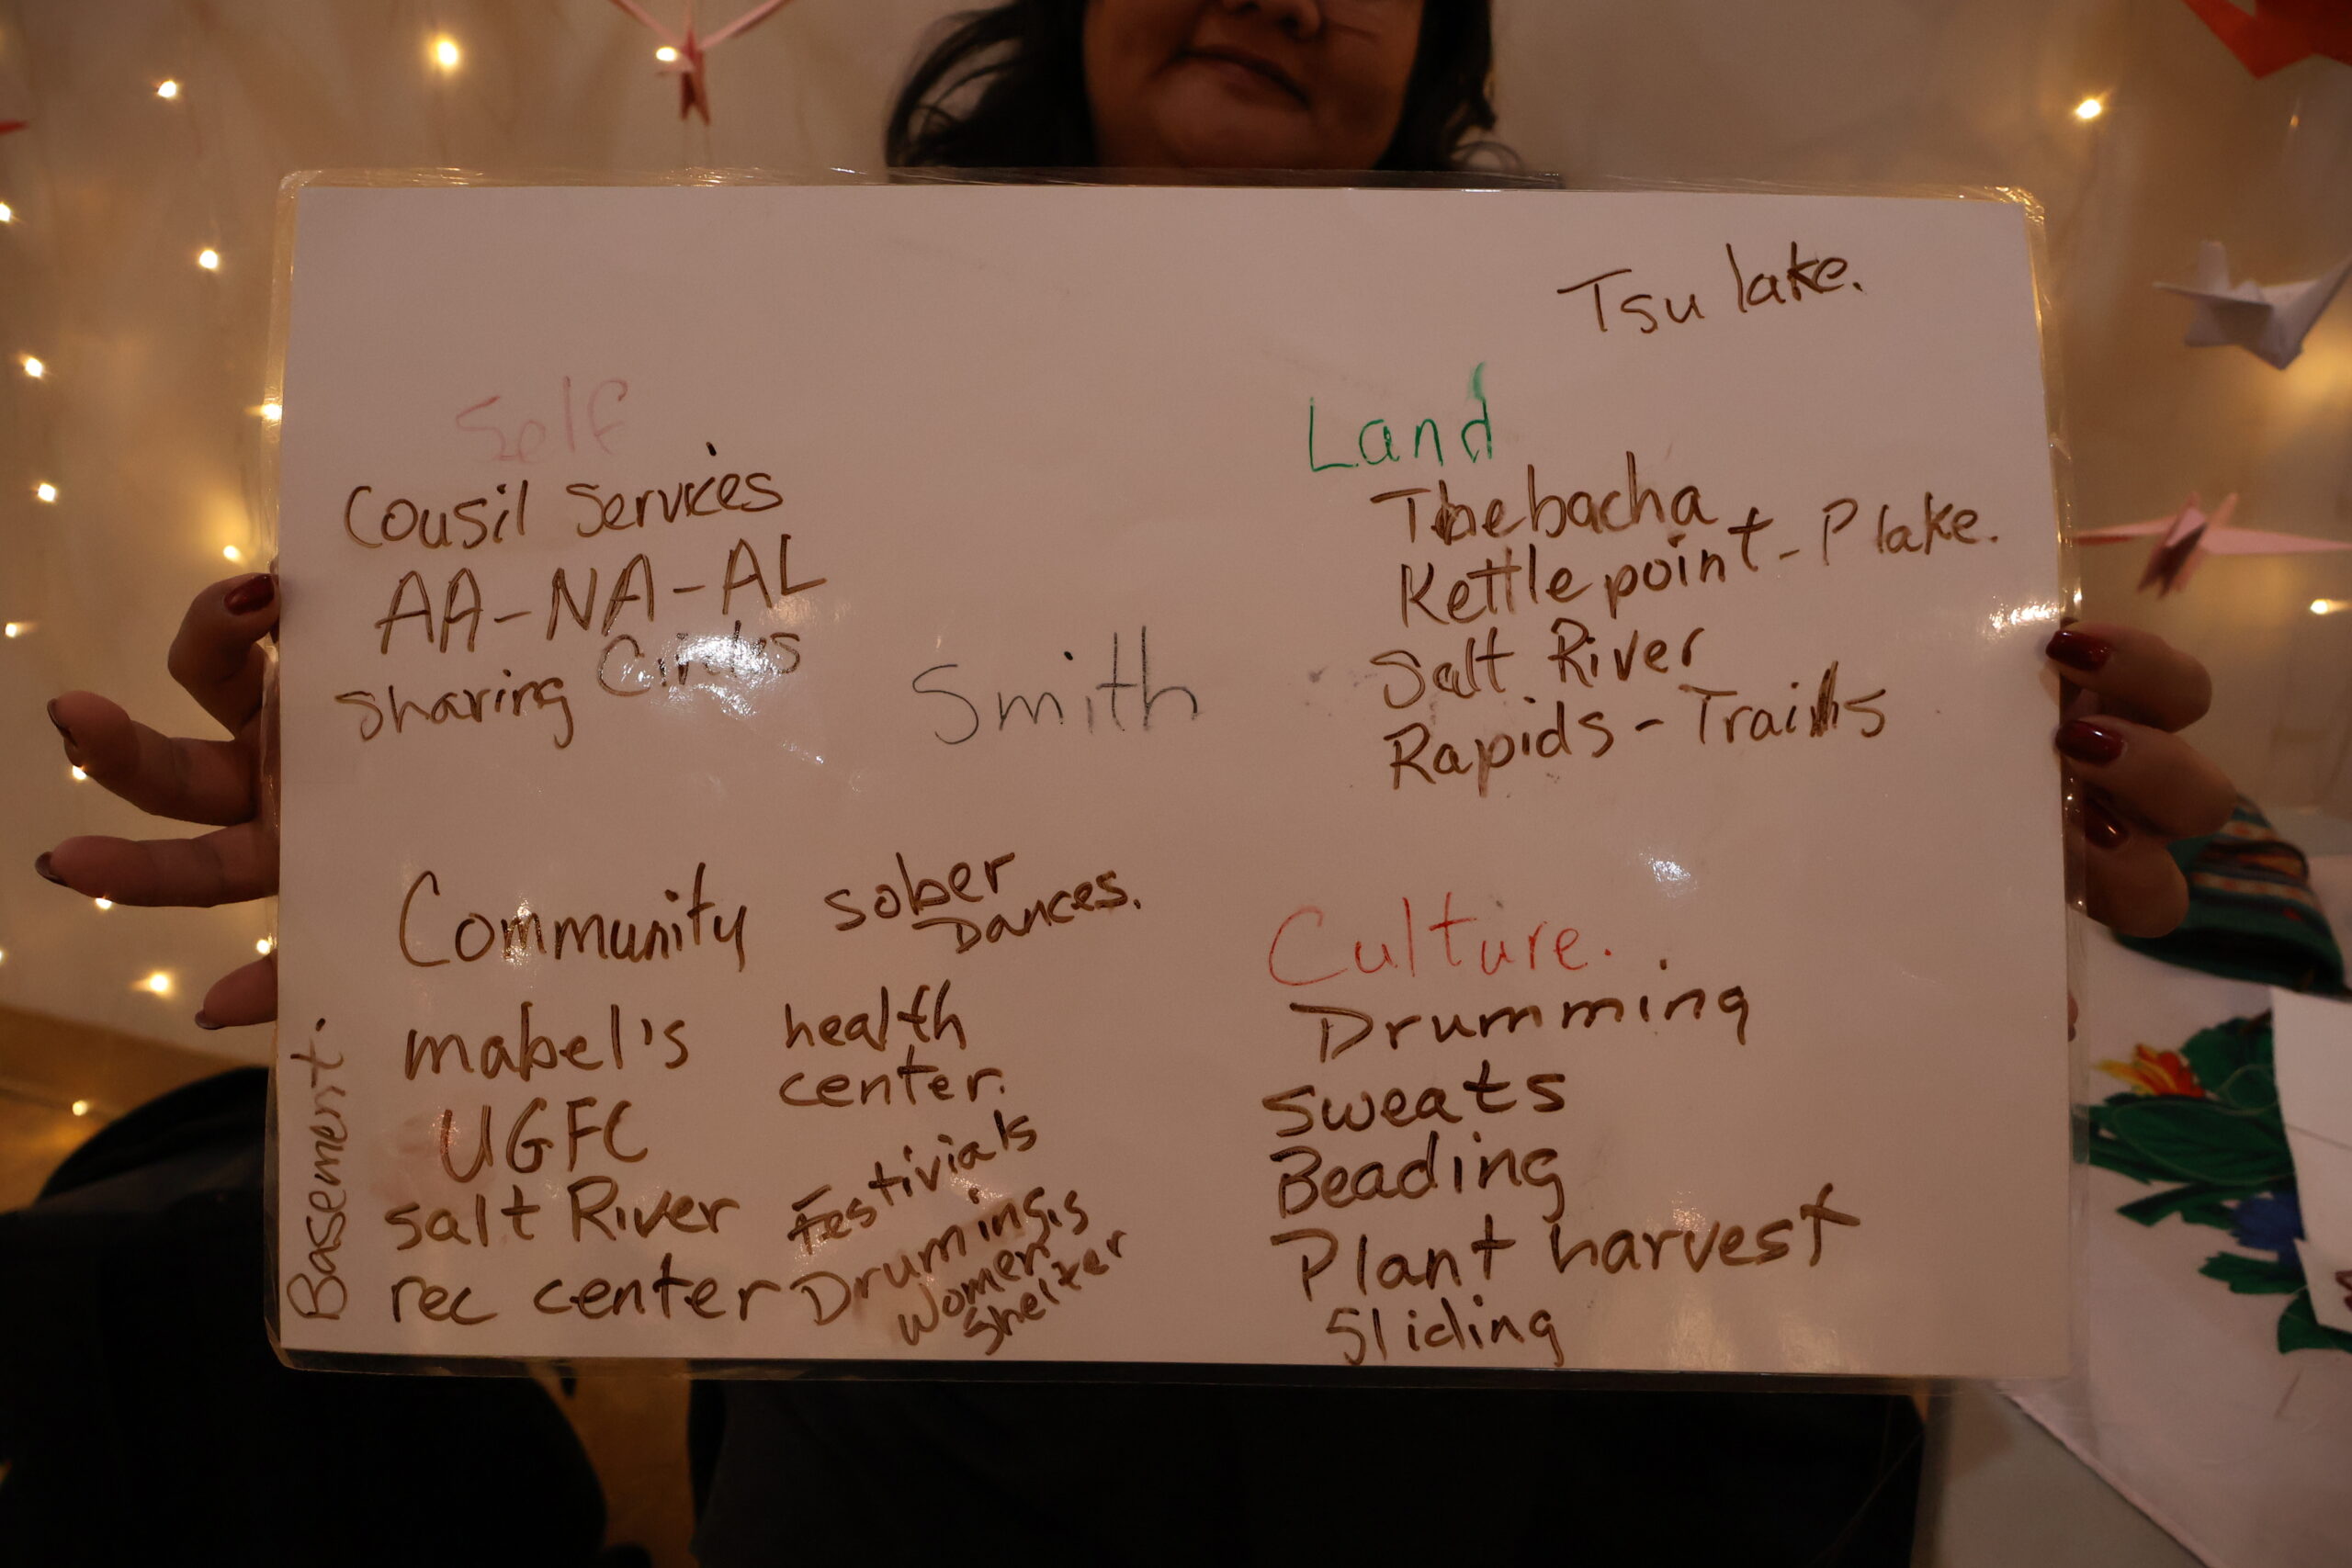 Tsu lake.
Self
Cousil Services
AA-NA-AL
Sharing Circles
Smith
Land
Thebacha
Kettle point-P lake.
Salt River
Rapids-Trails
Community
sober
Dances.
mabel's
UGFC
salt River
rec center
health
center.
Festivials
Drumings
Women
Shelter
Basement.
Culture.
Drumming
Sweats
Beading
Plant harvest
Sliding